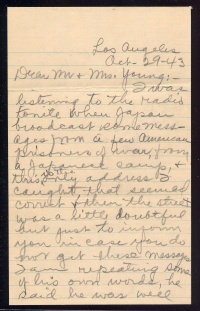 Los Angeles
Oct-29-43
Dear Mr & Mrs. Young:-
I was
listening to the radio
tonite when Japan
broadcast some mess-
ages from a few American
prisoners of war, from
a Japanese camp, &
this city address I
caught, that seemed
correct & then the street
was a little doubtful
but just to inform
you in case you do
not get these message
I am repeating some
of his own words, he
said he was well